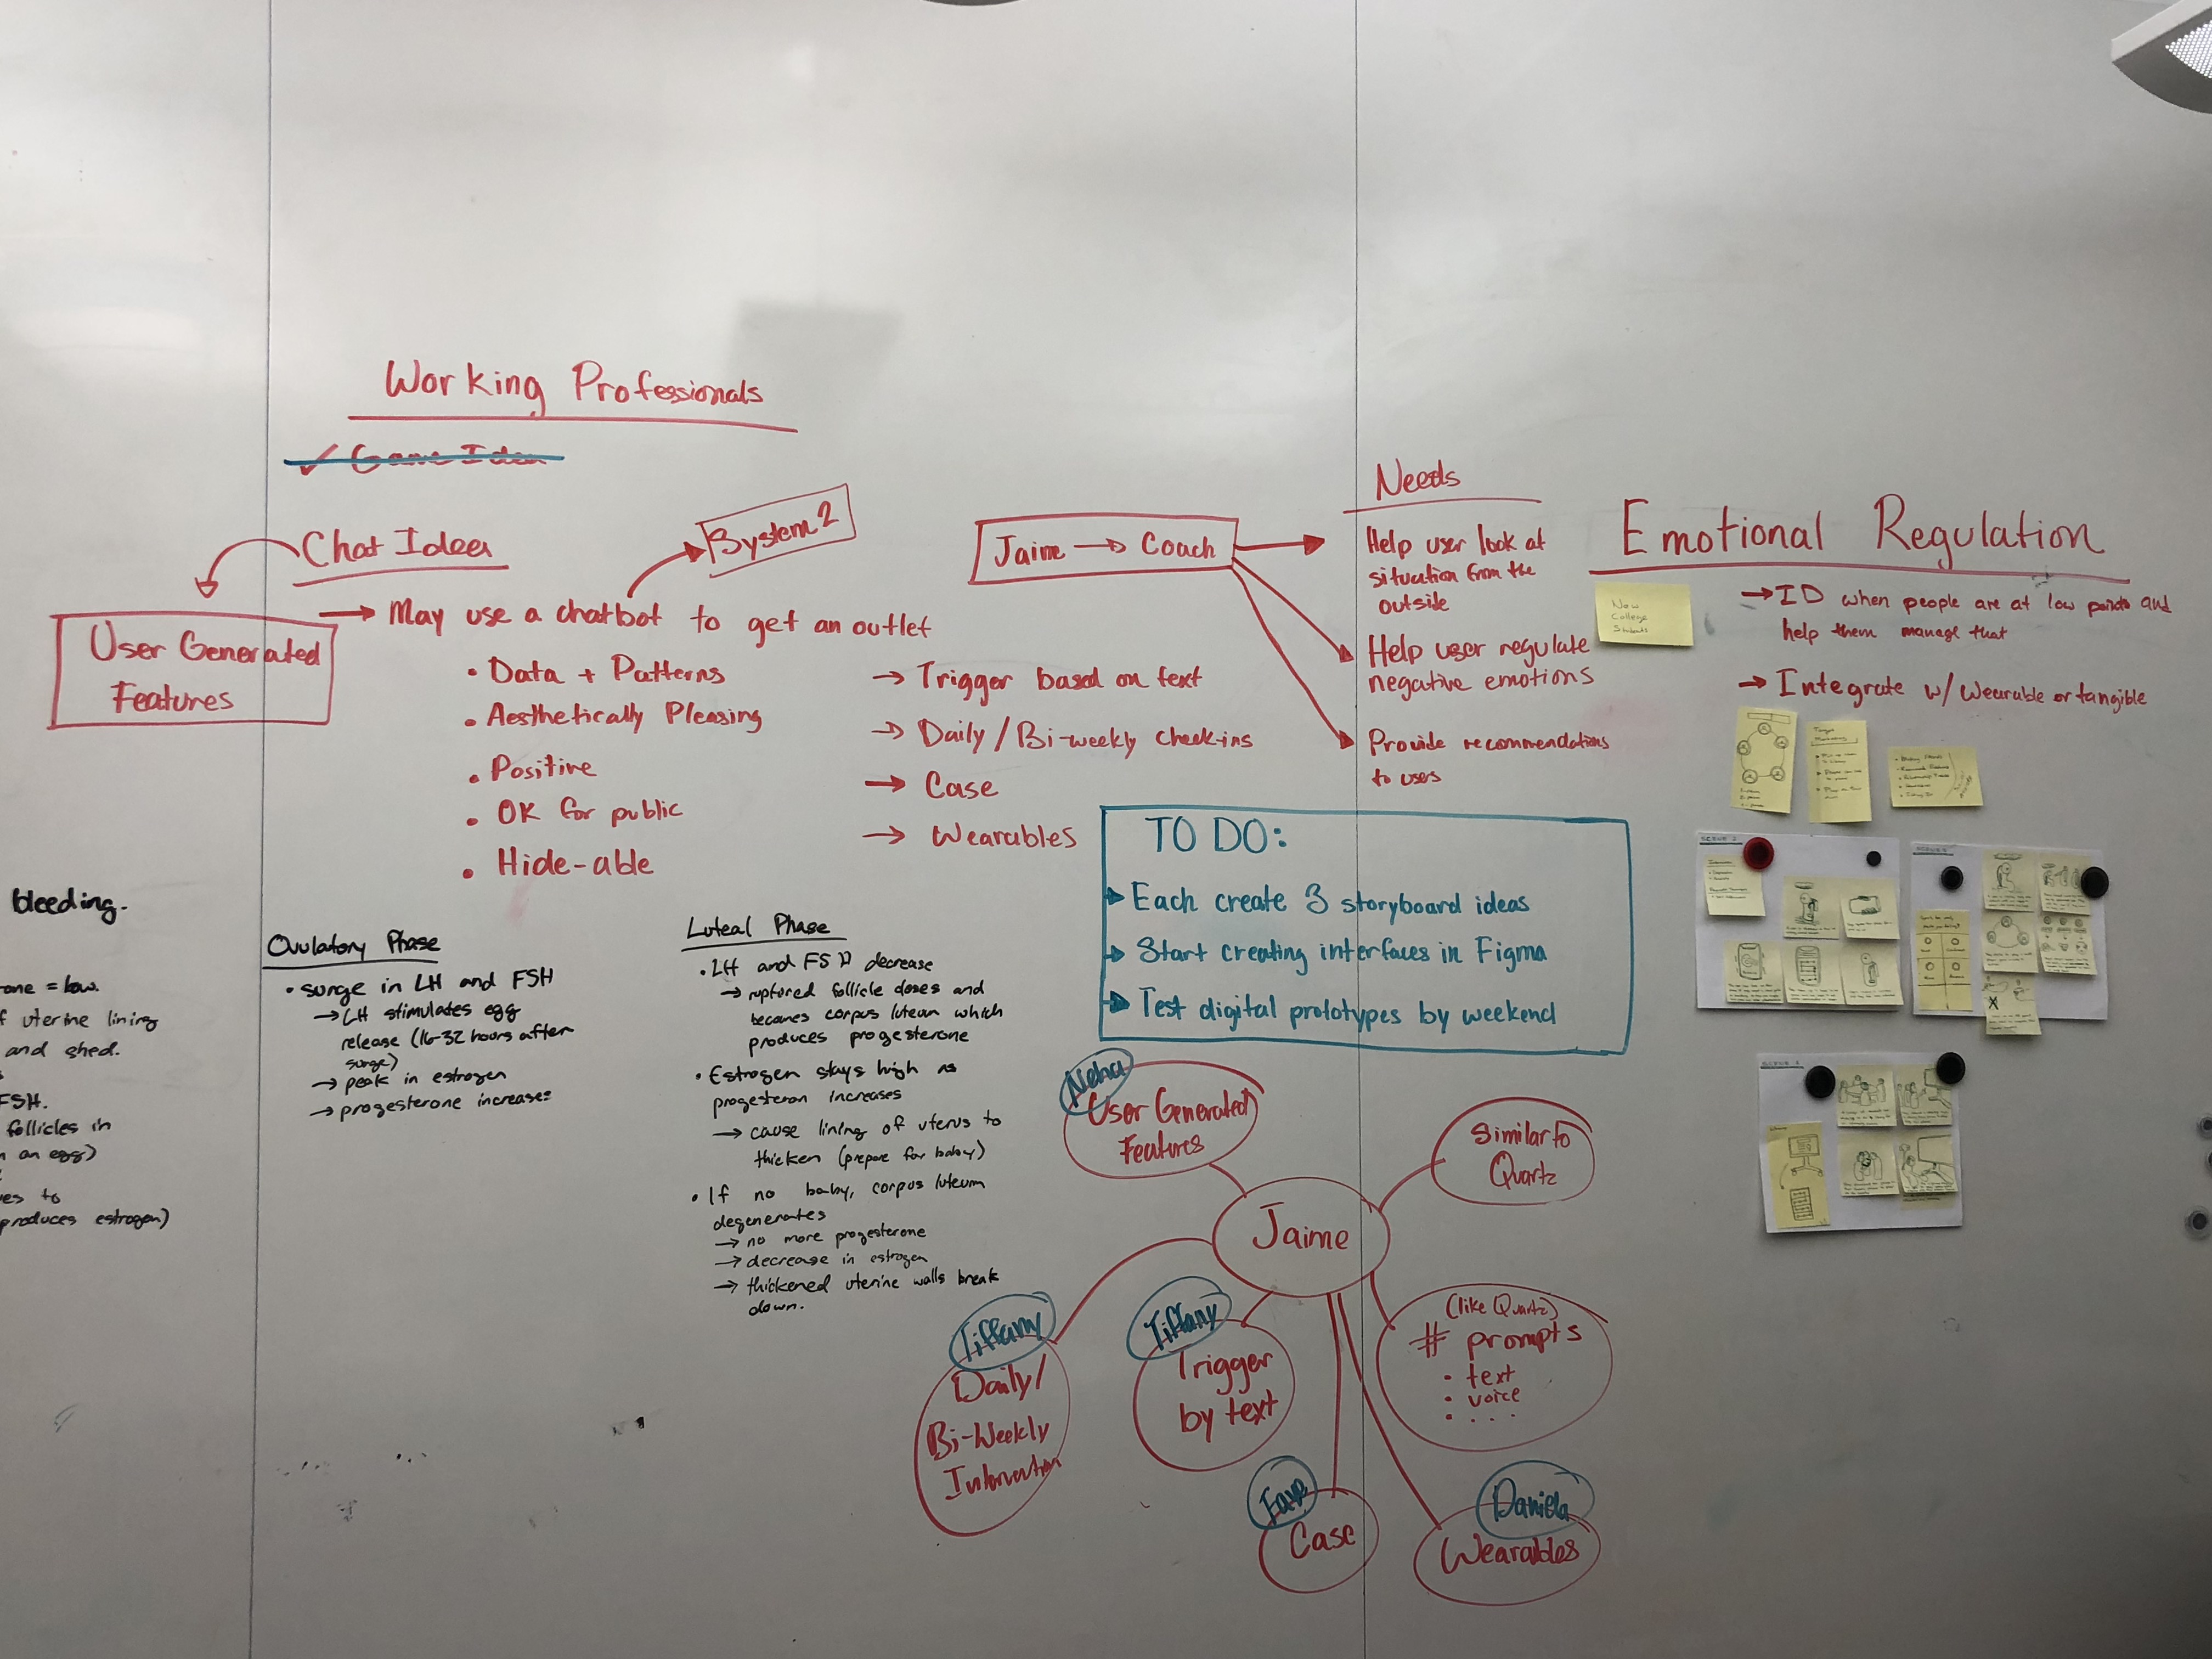 Working Professionals
✓ Game Idea
Chat Idea
System 2
User Generated
Features
→ May use a chatbot to get an outlet
• Data + Patterns
• Aesthetically Pleasing
• Positive
• OK for public
• Hide-able
→ Trigger based on text
→ Daily / Bi-weekly check-ins
→ Case
→ Wearables
Jaime → Coach
Needs
Help user look at
situation from the
outside
Help user regulate
negative emotions
Provide recommendations
to users
Emotional Regulation
New
College
Students
→ ID when people are at low points and
help them manage that
→ Integrate w/ Wearable or tangible
TO DO:
Each create 3 storyboard ideas
Start creating interfaces in Figma
Test digital prototypes by weekend
bleeding.
one = low.
uterine lining
and shed.
FSH.
follicles in
an egg)
to
produces estrogen)
Ovulatory Phase
• surge in LH and FSH
→ LH stimulates egg
release (16-32 hours after
surge)
→ peak in estrogen
→ progesterone increases
Luteal Phase
• LH and FSH decrease
→ ruptured follicle closes and
becomes corpus luteum which
produces progesterone
• Estrogen stays high as
progesteron increases
→ cause lining of uterus to
thicken (prepare for baby)
• If no baby, corpus luteum
degenerates
→ no more progesterone
→ decrease in estrogen
→ thickened uterine walls break
down.
Neha
User Generated
Features
Similar to
Quartz
Jaime
Tiffany
Daily/
Bi-Weekly
Intervention
Tiffany
Trigger
by text
(like Quartz)
# prompts
• text
• voice
• . . .
Faye
Case
Daniela
Wearables